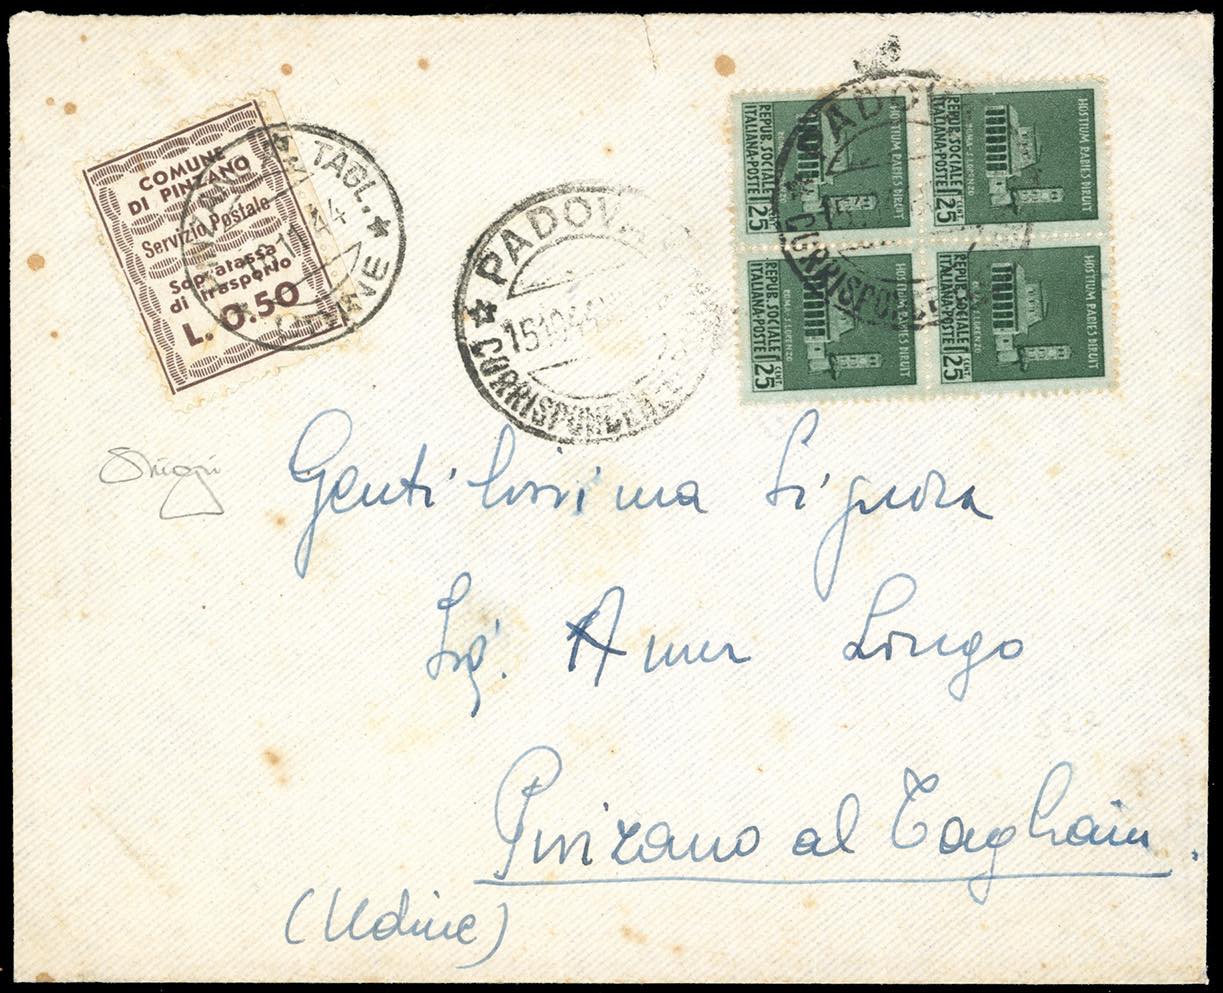 COMUNE
DI PINZANO
Servizio Postale
Sopratassa
di trasporto
L. 0.50
TAGL.
UDINE
PADOVA
15 10 44
CORRISPONDENZE
HOSTIUM RABIES DIRUIT
REPUB. SOCIALE
ITALIANA-POSTE
CENT. 25
HOSTIUM RABIES DIRUIT
ROMA-S. LORENZO
REPUB. SOCIALE
ITALIANA-POSTE
CENT. 25
HOSTIUM RABIES DIRUIT
ROMA-S. LORENZO
REPUB. SOCIALE
ITALIANA-POSTE
CENT. 25
HOSTIUM RABIES DIRUIT
REPUB. SOCIALE
ITALIANA-POSTE
CENT. 25
PADOVA
CORRISPONDENZE
Gentilissima Signora
Sig. Longo
Pinzano al Tagliam.
(Udine)